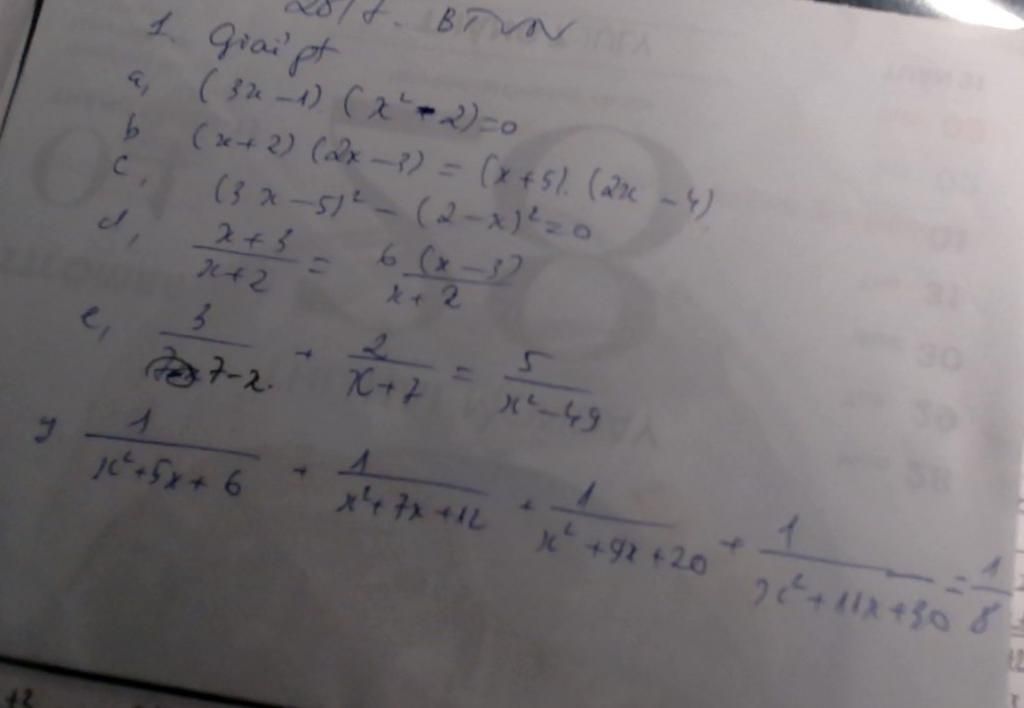 BTVN
1. Giải pt
a, (3x-1) (x² - 2)=0
b (x+2) (2x-3) = (x+5). (2x-4)
c, (3x-5)² - (2-x)² = 0
d, \frac{x+3}{x+2} = \frac{6(x-3)}{x+2}
e, \frac{3}{7-x} + \frac{2}{x+7} = \frac{5}{x²-49}
\frac{1}{x²+5x+6} + \frac{1}{x²+7x+12} + \frac{1}{x²+9x+20} + \frac{1}{x²+11x+30} = \frac{1}{8}
+2